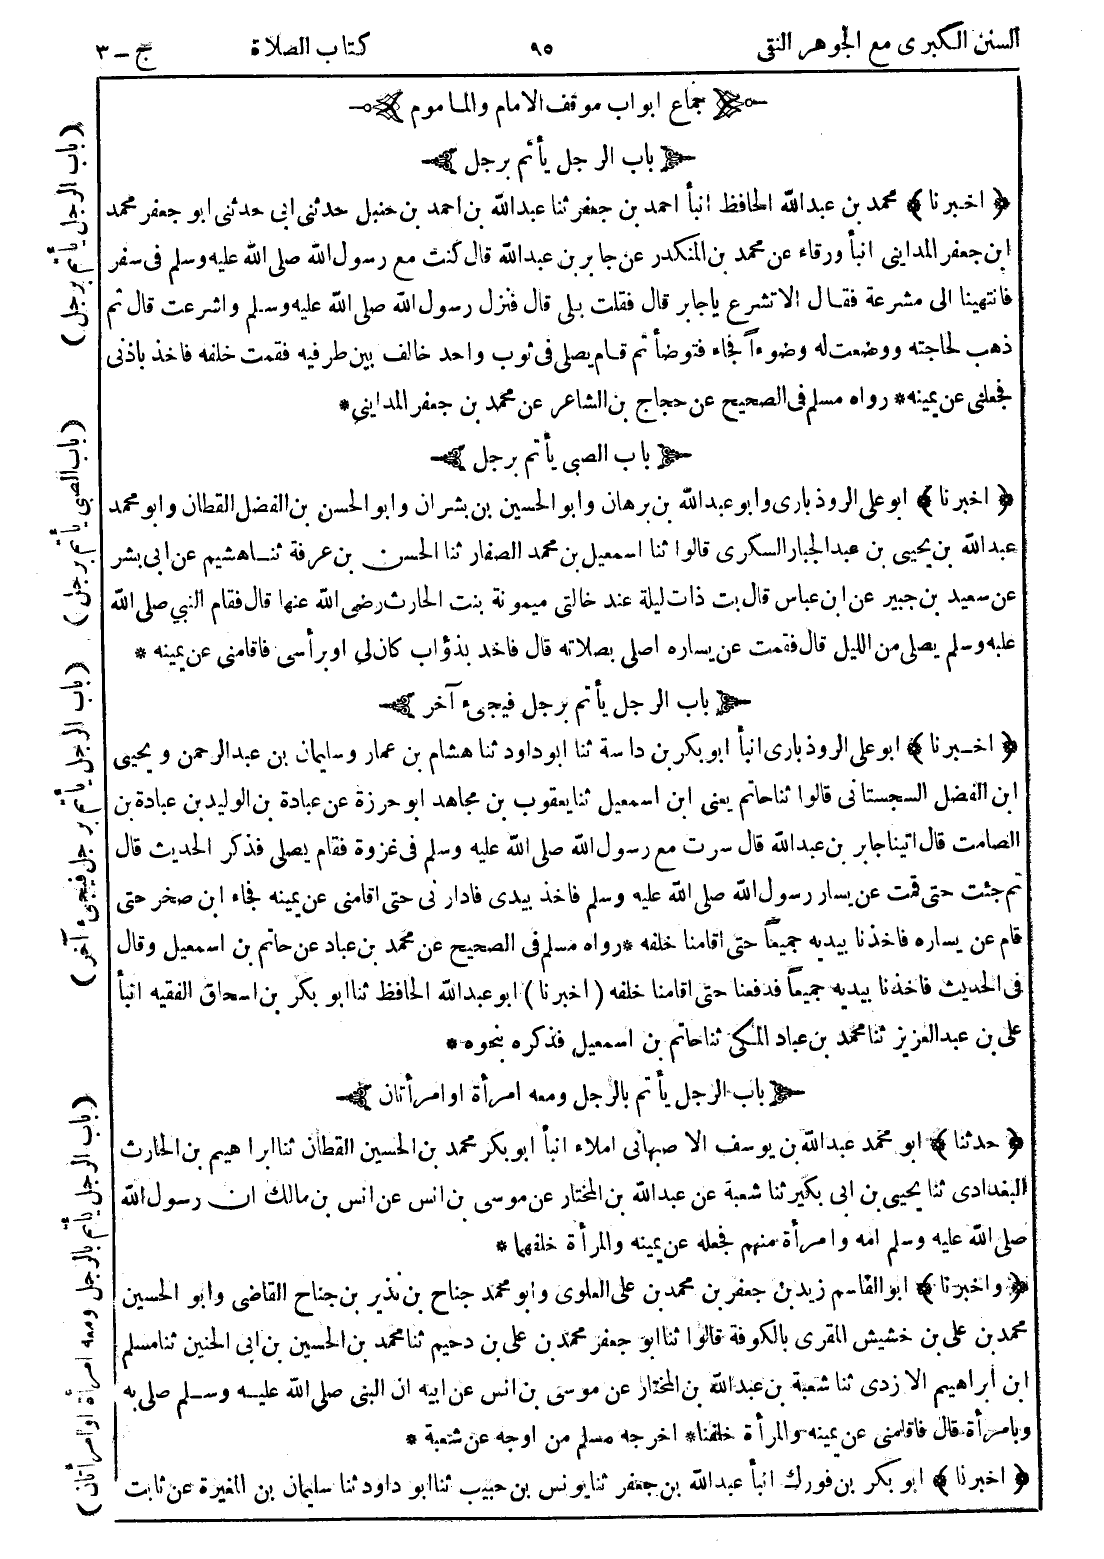 السنن الكبرى مع الجوهر النقى ٩٥ كتاب الصلاة ج - ٣
جماع ابواب موقف الامام والماموم
باب الرجل يأتم برجل
﴿ اخبرنا ﴾ محمد بن عبدالله الحافظ انبأ احمد بن جعفر ثنا عبدالله بن احمد بن حنبل حدثنى ابى حدثنى ابو جعفر محمد
ابن جعفر المداينى انبأ ورقاء عن محمد بن المنكدر عن جابر بن عبدالله قال كنت مع رسول الله صلى الله عليه وسلم فى سفر
فانتهينا الى مشرعة فقال الا تشرع ياجابر قال فقلت بلى قال فنزل رسول الله صلى الله عليه وسلم واشرعت قال ثم
ذهب لحاجته ووضعت له وضوءاً فجاء فتوضأ ثم قام يصلى فى ثوب واحد خالف بين طرفيه فقمت خلفه فاخذ باذنى
فجعلنى عن يمينه* رواه مسلم فى الصحيح عن حجاج بن الشاعر عن محمد بن جعفر المداينى*
باب الصبى يأتم برجل
﴿ اخبرنا ﴾ ابو على الروذبارى وابو عبدالله بن برهان وابو الحسين بن بشران وابو الحسن بن الفضل القطان وابو محمد
عبدالله بن يحيى بن عبدالجبار السكرى قالوا ثنا اسمعيل بن محمد الصفار ثنا الحسن بن عرفة ثنا هشيم عن ابى بشر
عن سعيد بن جبير عن ابن عباس قال بت ذات ليلة عند خالتى ميمونة بنت الحارث رضى الله عنها قال فقام النبي صلى الله
عليه وسلم يصلى من الليل قال فقمت عن يساره اصلى بصلاته قال فاخد بذؤاب كان لى او برأسى فاقامنى عن يمينه *
باب الرجل يأتم برجل فيجىء آخر
﴿ اخبرنا ﴾ ابو على الروذبارى انبأ ابو بكر بن داسة ثنا ابو داود ثنا هشام بن عمار وسليمان بن عبدالرحمن ويحيى
ابن الفضل السجستانى قالوا ثنا حاتم يعنى ابن اسمعيل ثنا يعقوب بن مجاهد ابو حرزة عن عبادة بن الوليد بن عبادة بن
الصامت قال اتينا جابر بن عبدالله قال سرت مع رسول الله صلى الله عليه وسلم فى غزوة فقام يصلى فذكر الحديث قال
ثم جئت حتى قمت عن يسار رسول الله صلى الله عليه وسلم فاخذ بيدى فادارنى حتى اقامنى عن يمينه فجاء ابن صخر حتى
قام عن يساره فاخذنا بيديه جميعاً حتى اقامنا خلفه *رواه مسلم فى الصحيح عن محمد بن عباد عن حاتم بن اسمعيل وقال
فى الحديث فاخذنا بيديه جميعاً فدفعنا حتى اقامنا خلفه ( اخبرنا ) ابو عبدالله الحافظ ثنا ابو بكر بن اسحاق الفقيه انبأ
على بن عبدالعزيز ثنا محمد بن عباد المكى ثنا حاتم بن اسمعيل فذكره بنحوه *
باب الرجل يأتم بالرجل ومعه امرأة او امرأتان
﴿ حدثنا ﴾ ابو محمد عبدالله بن يوسف الاصبهانى املاء انبأ ابو بكر محمد بن الحسين القطان ثنا ابراهيم بن الحارث
البغدادى ثنا يحيى بن ابى بكير ثنا شعبة عن عبدالله بن المختار عن موسى بن انس عن انس بن مالك ان رسول الله
صلى الله عليه وسلم امه وامرأة منهم فجعله عن يمينه والمرأة خلفهما *
﴿ واخبرنا ﴾ ابو القاسم زيد بن جعفر بن محمد بن على العلوى وابو محمد جناح بن نذير بن جناح القاضى وابو الحسين
محمد بن على بن خشيش المقرى بالكوفة قالوا ثنا ابو جعفر محمد بن على بن دحيم ثنا محمد بن الحسين بن ابى الحنين ثنا مسلم
ابن أبراهيم الازدى ثنا شعبة بن عبدالله بن المختار عن موسى بن انس عن ابيه ان النبى صلى الله عليه وسلم صلى به
وبامرأة قال فاقامنى عن يمينه والمرأة خلفنا* اخرجه مسلم من اوجه عن شعبة *
﴿ اخبرنا ﴾ ابو بكر بن فورك انبأ عبدالله بن جعفر ثنا يونس بن حبيب ثنا ابو داود ثنا سليمان بن المغيرة عن ثابت
(باب الرجل يأتم برجل)
(باب الصبى يأتم برجل)
(باب الرجل يأتم برجل فيجىء آخر)
(باب الرجل يأتم بالرجل ومعه امرأة او امرأتان)